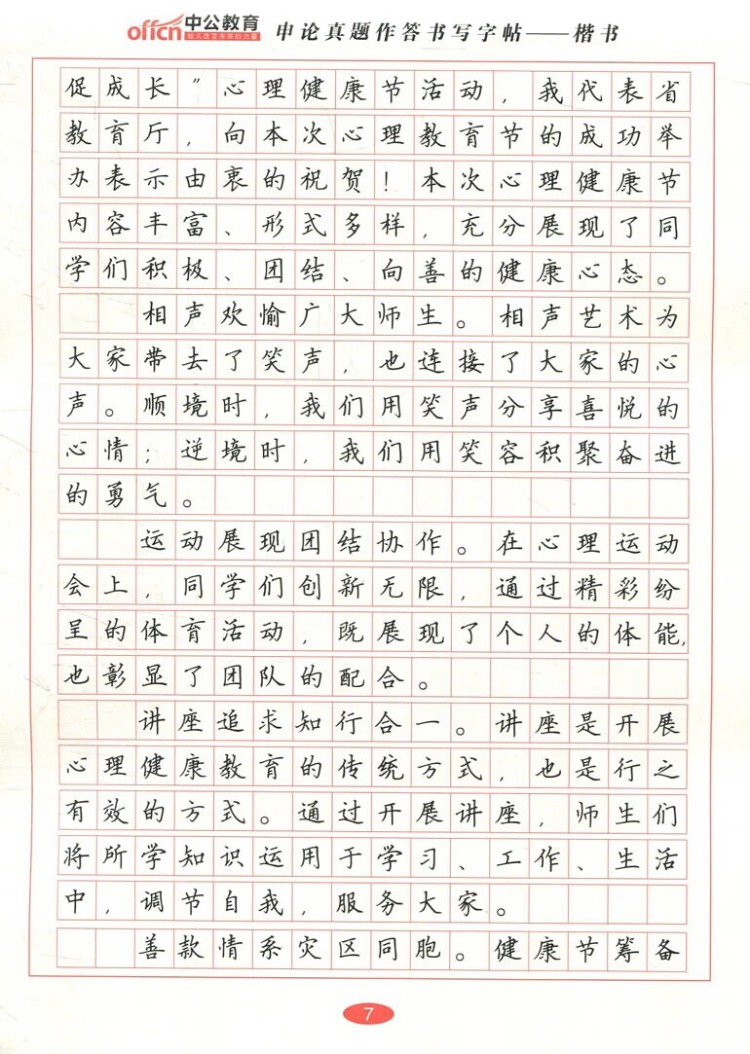 offcn 中公教育 申论真题作答书写字帖——楷书
给人改变未来的力量
促成长”心理健康节活动，我代表省
教育厅，向本次心理教育节的成功举
办表示由衷的祝贺！本次心理健康节
内容丰富、形式多样，充分展现了同
学们积极、团结、向善的健康心态。
相声欢愉广大师生。相声艺术为
大家带去了笑声，也连接了大家的心
声。顺境时，我们用笑声分享喜悦的
心情；逆境时，我们用笑容积聚奋进
的勇气。
运动展现团结协作。在心理运动
会上，同学们创新无限，通过精彩纷
呈的体育活动，既展现了个人的体能，
也彰显了团队的配合。
讲座追求知行合一。讲座是开展
心理健康教育的传统方式，也是行之
有效的方式。通过开展讲座，师生们
将所学知识运用于学习、工作、生活
中，调节自我，服务大家。
善款情系灾区同胞。健康节筹备
7